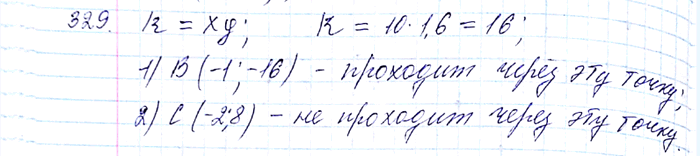 329. k = xy; k = 10·1,6 = 16;
1) B (-1; -16) - проходит через эту точку;
2) C (-2; 8) - не проходит через эту точку.